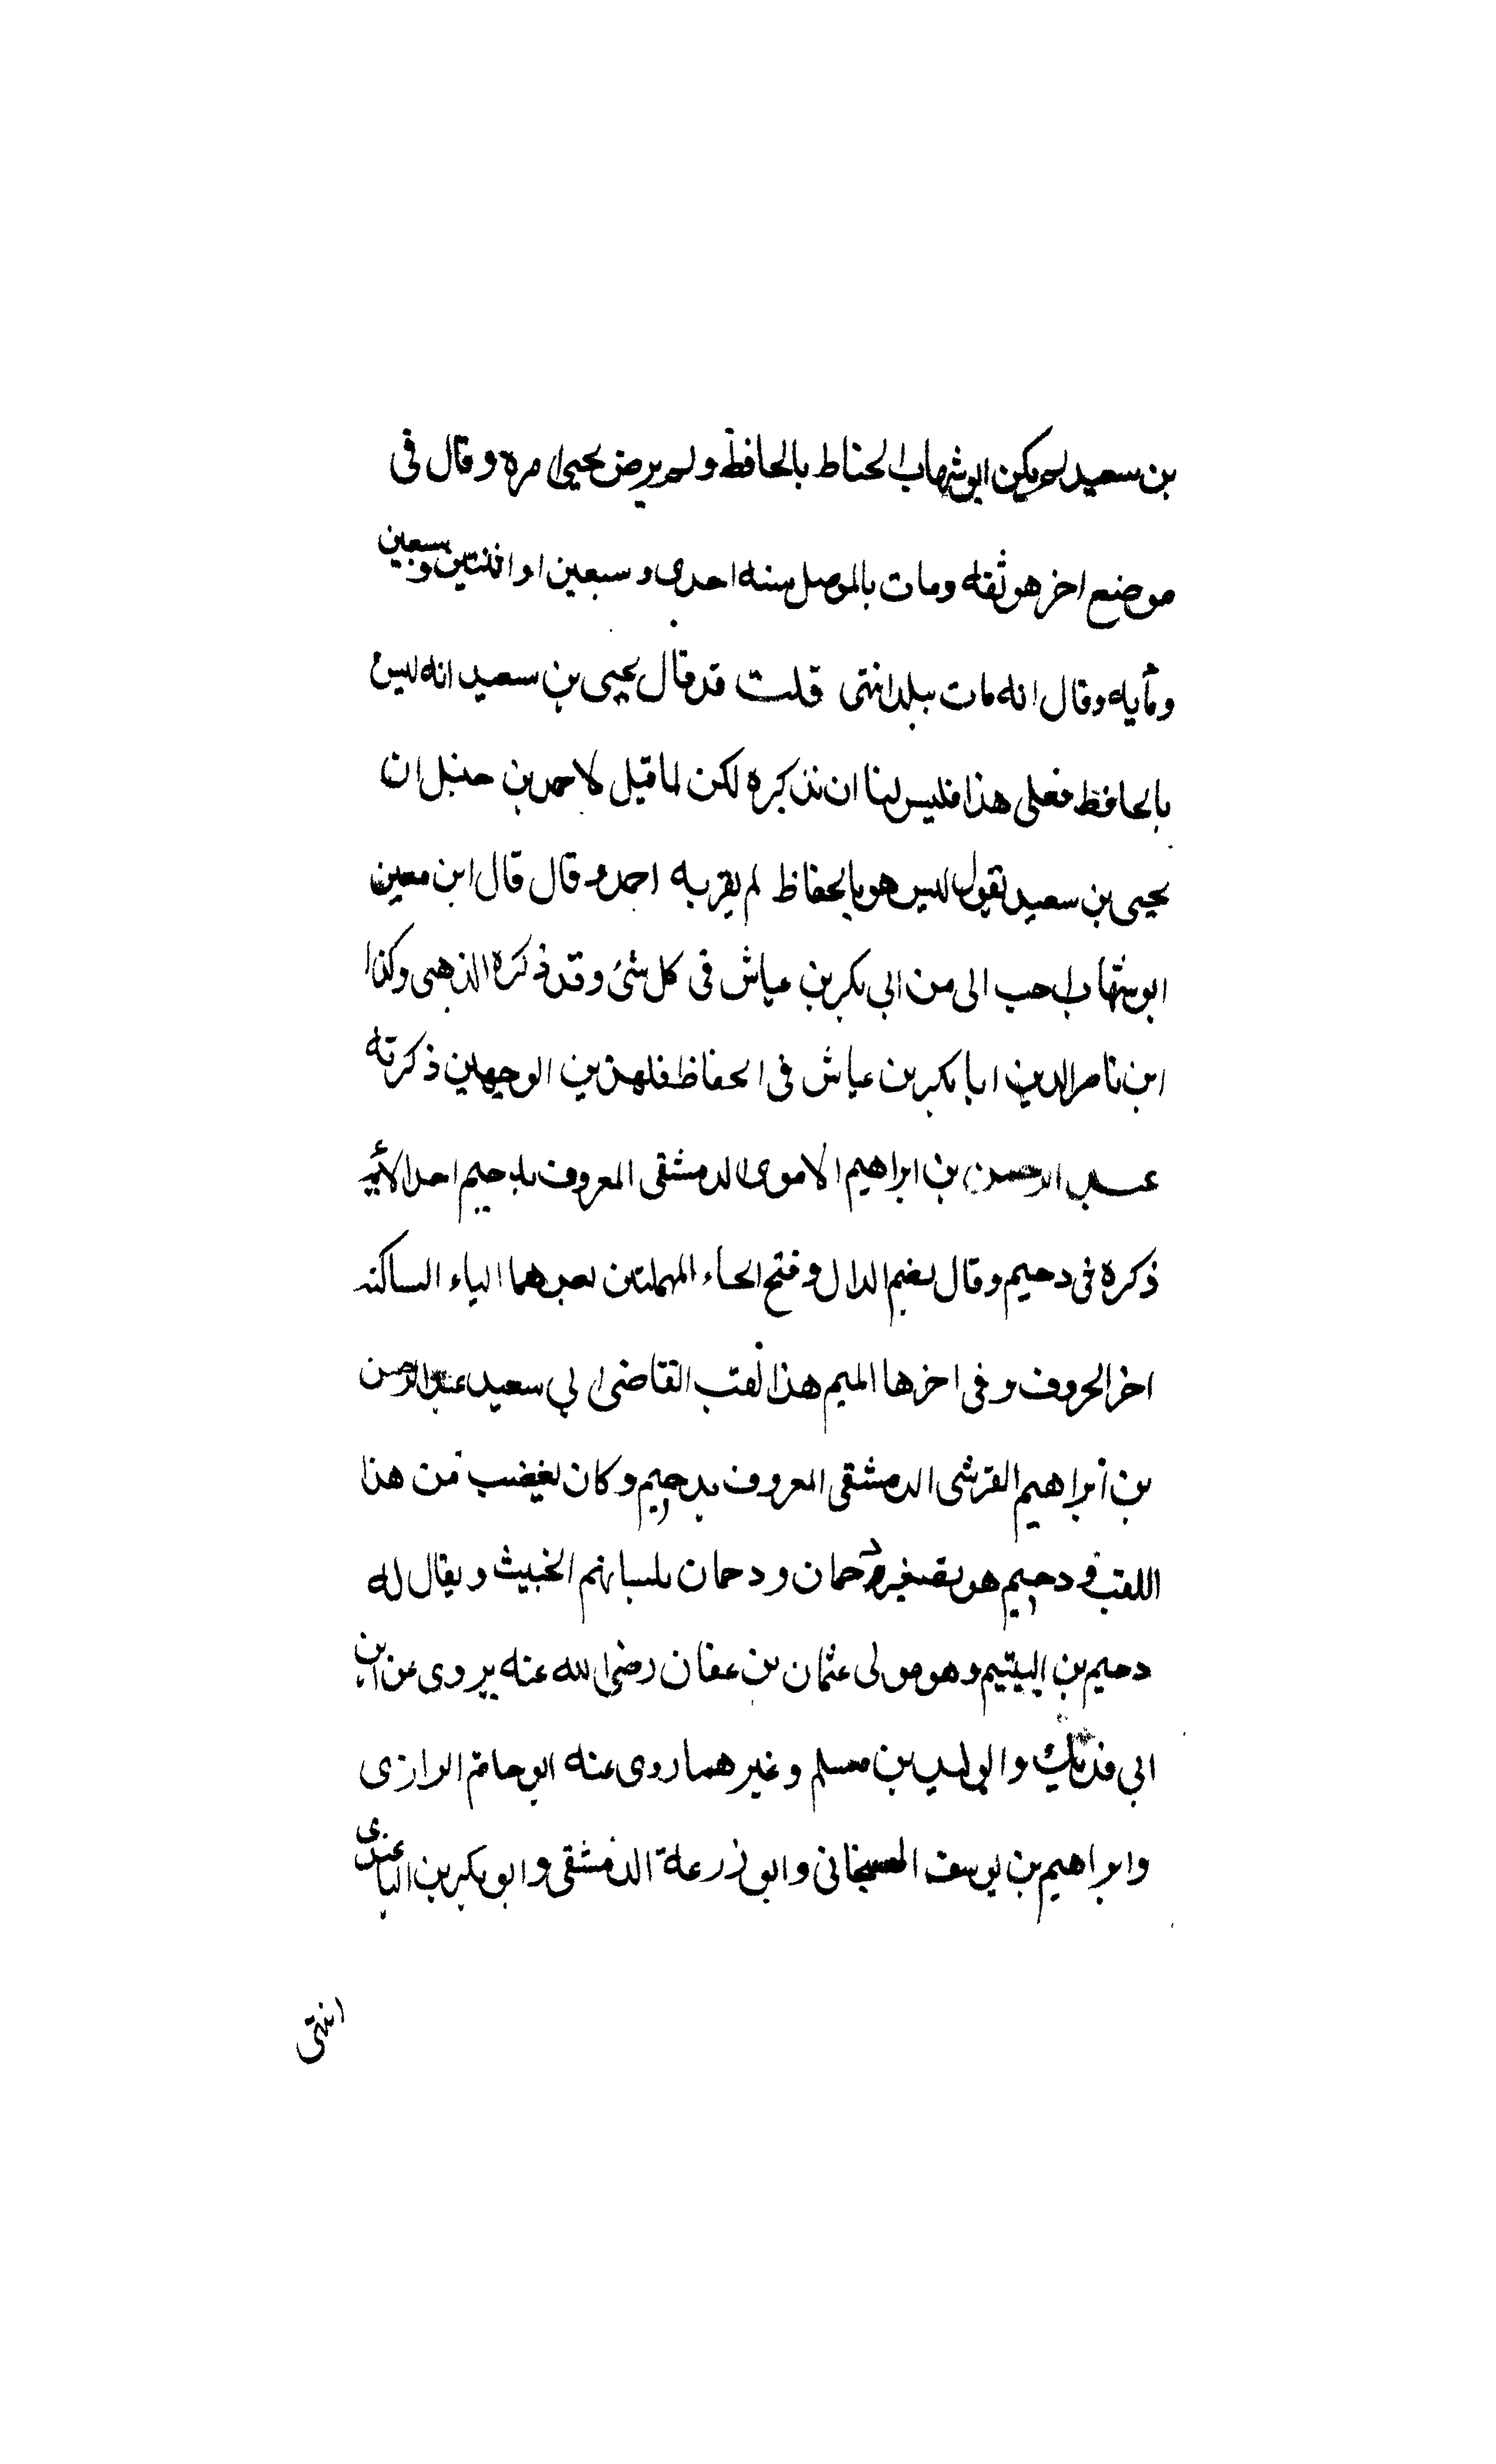 بن سعيد لم يكن ابو شهاب الحناط بالحافظ ولم يرض يحيى امره وقال فى
موضع اخر هو ثقه ومات بالموصل سنه احدى وسبعين او اثنتين وسبعين
ومأيه وقال انه مات ببلد انتى قلت قد قال يحيى بن سعيد انه ليس
بالحافظ فعلى هذا فليس لنا ان نذكره لكن لما قيل لاحمد بن حنبل ان
يحيى بن سعيد يقول ليس هو بالحفاظ لم يقر به احمد وقال قال ابن معين
ابو شهاب احب الى من ابى بكر بن عياش فى كل شئ وقد ذكره الذهبى وكذا
ابن ناصر الدين ابا بكر بن عياش فى الحفاظ فلهذين الوجهين ذكرته
عبد الرحمن بن ابراهيم الاموى الدمشقى المعروف بدحيم احد الأئمه
ذكره فى دحيم وقال بضم الدال وفتح الحاء المهملتين بعدهما الياء الساكنه
اخر الحروف وفى اخرها الميم هذا لقب القاضى ابي سعيد عبد الرحمن
بن أبراهيم القرشى الدمشقى المعروف بدحيم وكان يغضب من هذا
اللقب ودحيم هو تصغير دحمان ودحمان بلسانهم الخبيث ويقال له
دحيم بن اليتيم وهو مولى عثمان بن عفان رضى الله عنه يروى عن ابن
ابى فديك والوليد بن مسلم وغيرهما روى عنه ابو حاتم الرازى
وابراهيم بن يوسف الهسنجانى وابو زرعة الدمشقى وابو بكر بن الباغندى
انتى